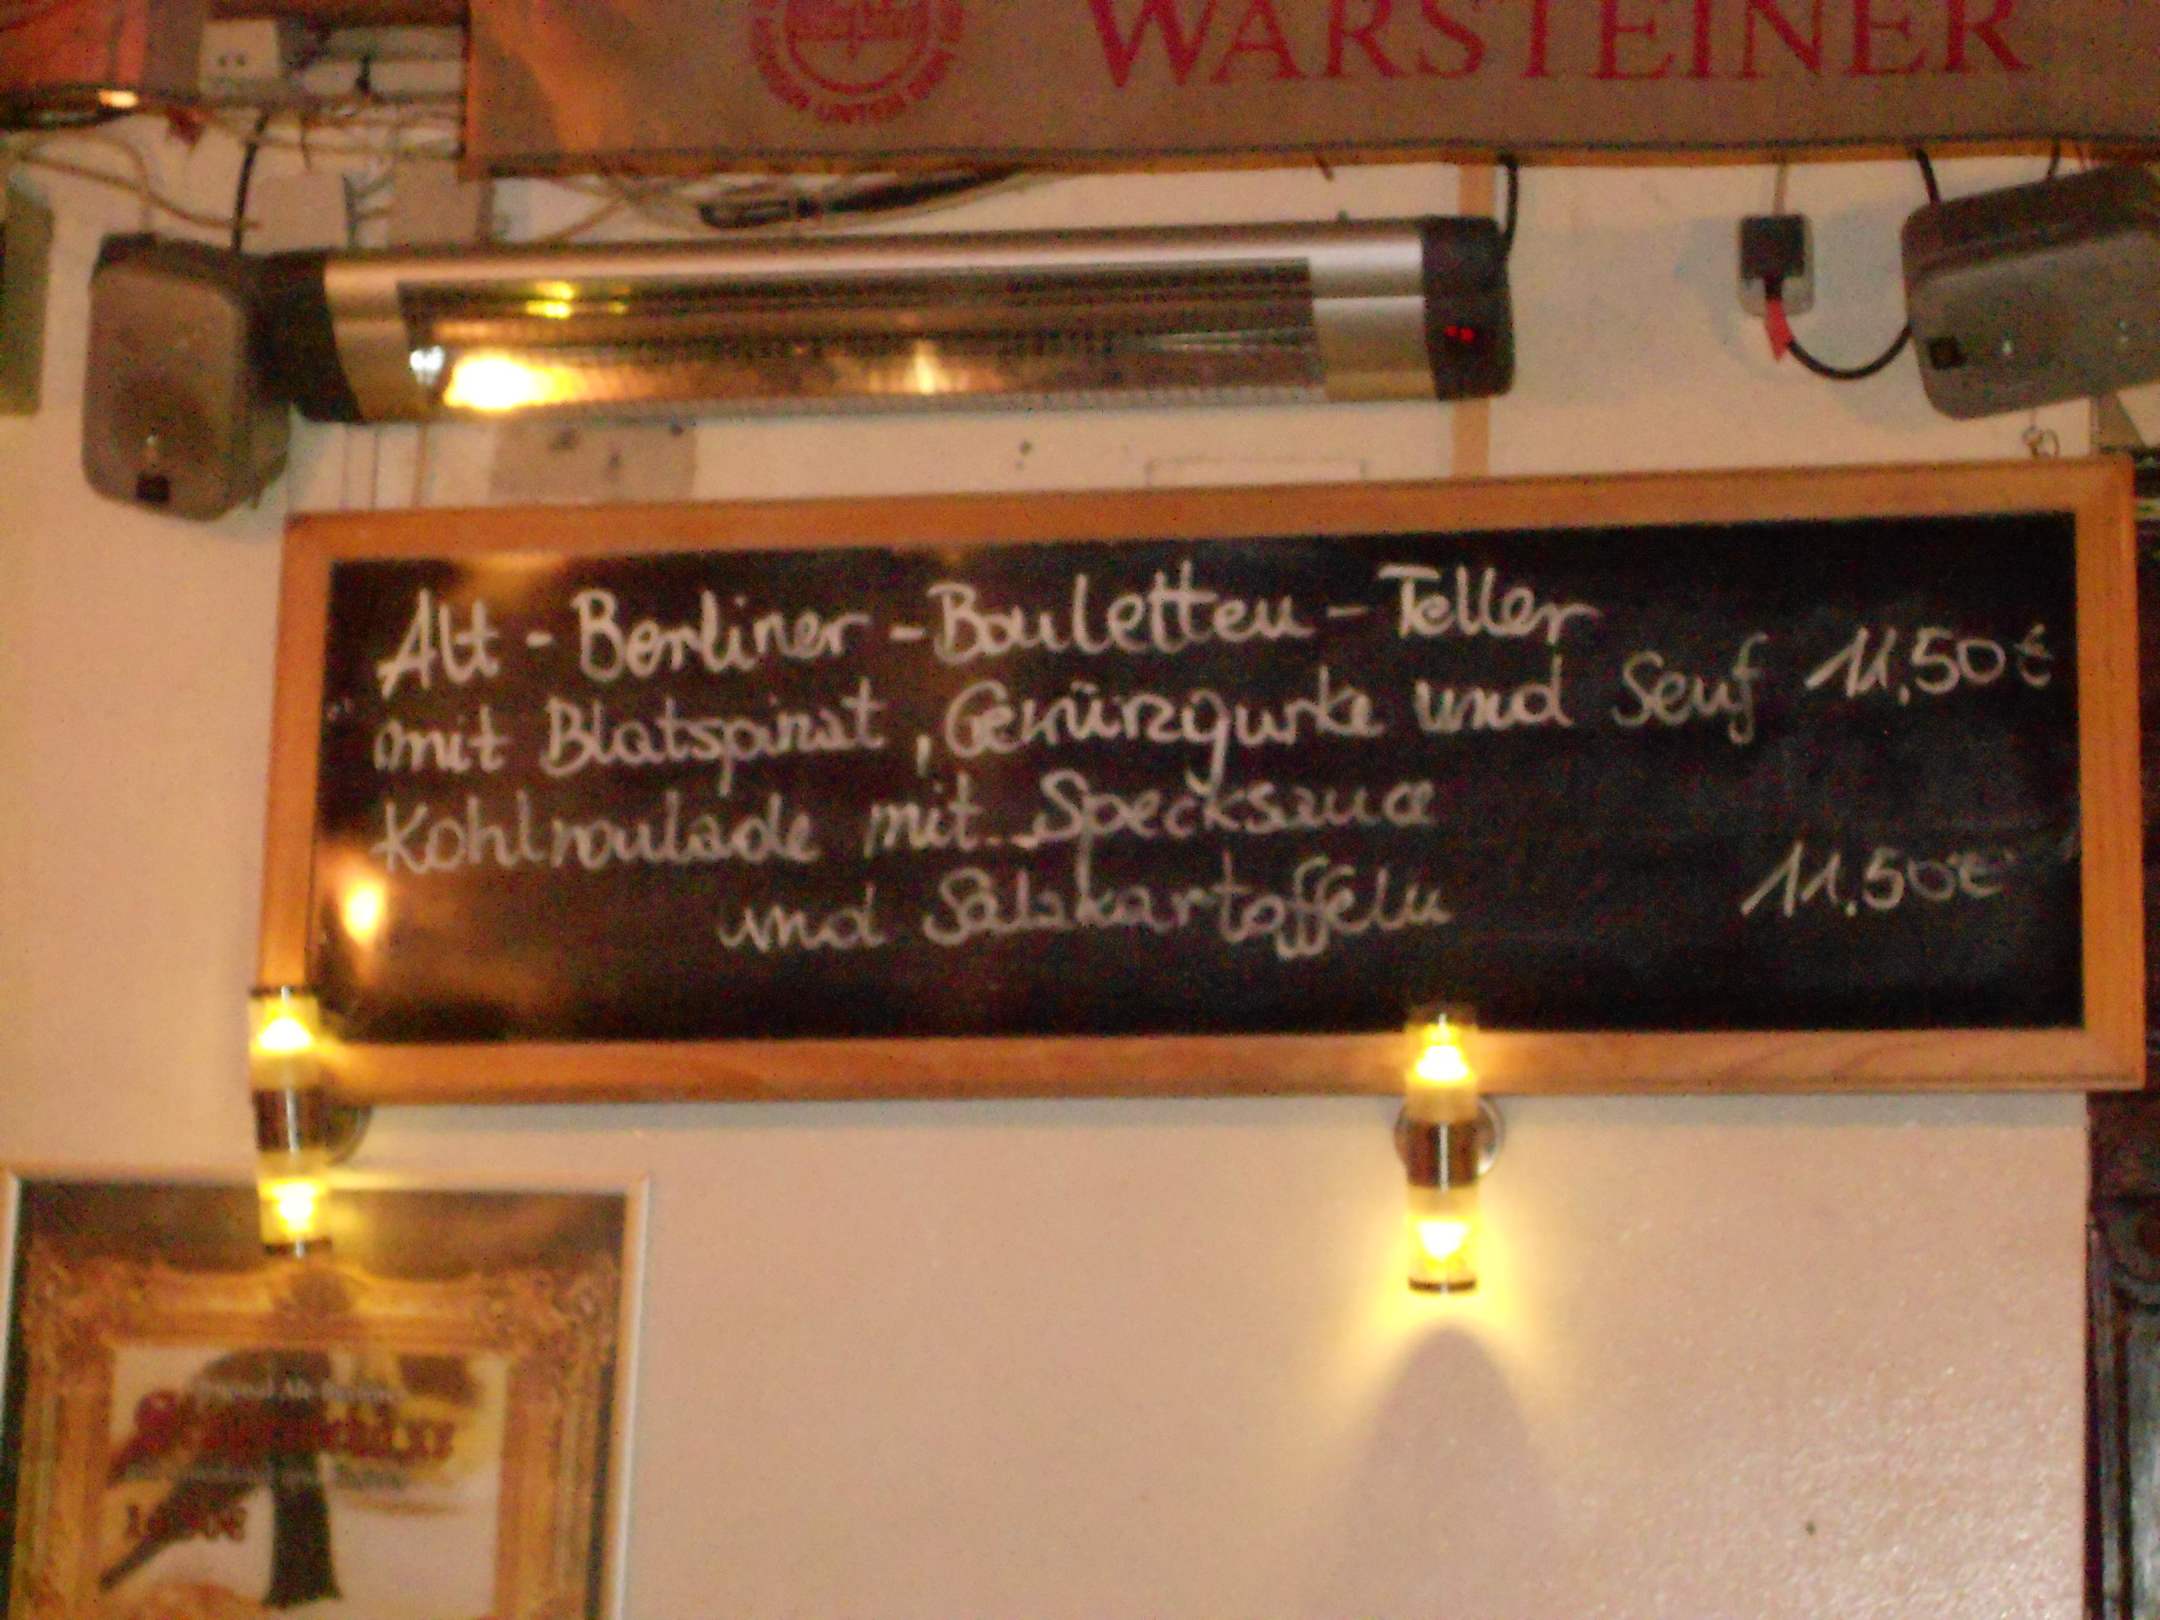 WARSTEINER
Alt-Berliner-Bouletten-Teller
mit Blatspinat, Gewürzgurke und Senf 11,50€
Kohlroulade mit Specksauce
und Salzkartoffeln 11.50€